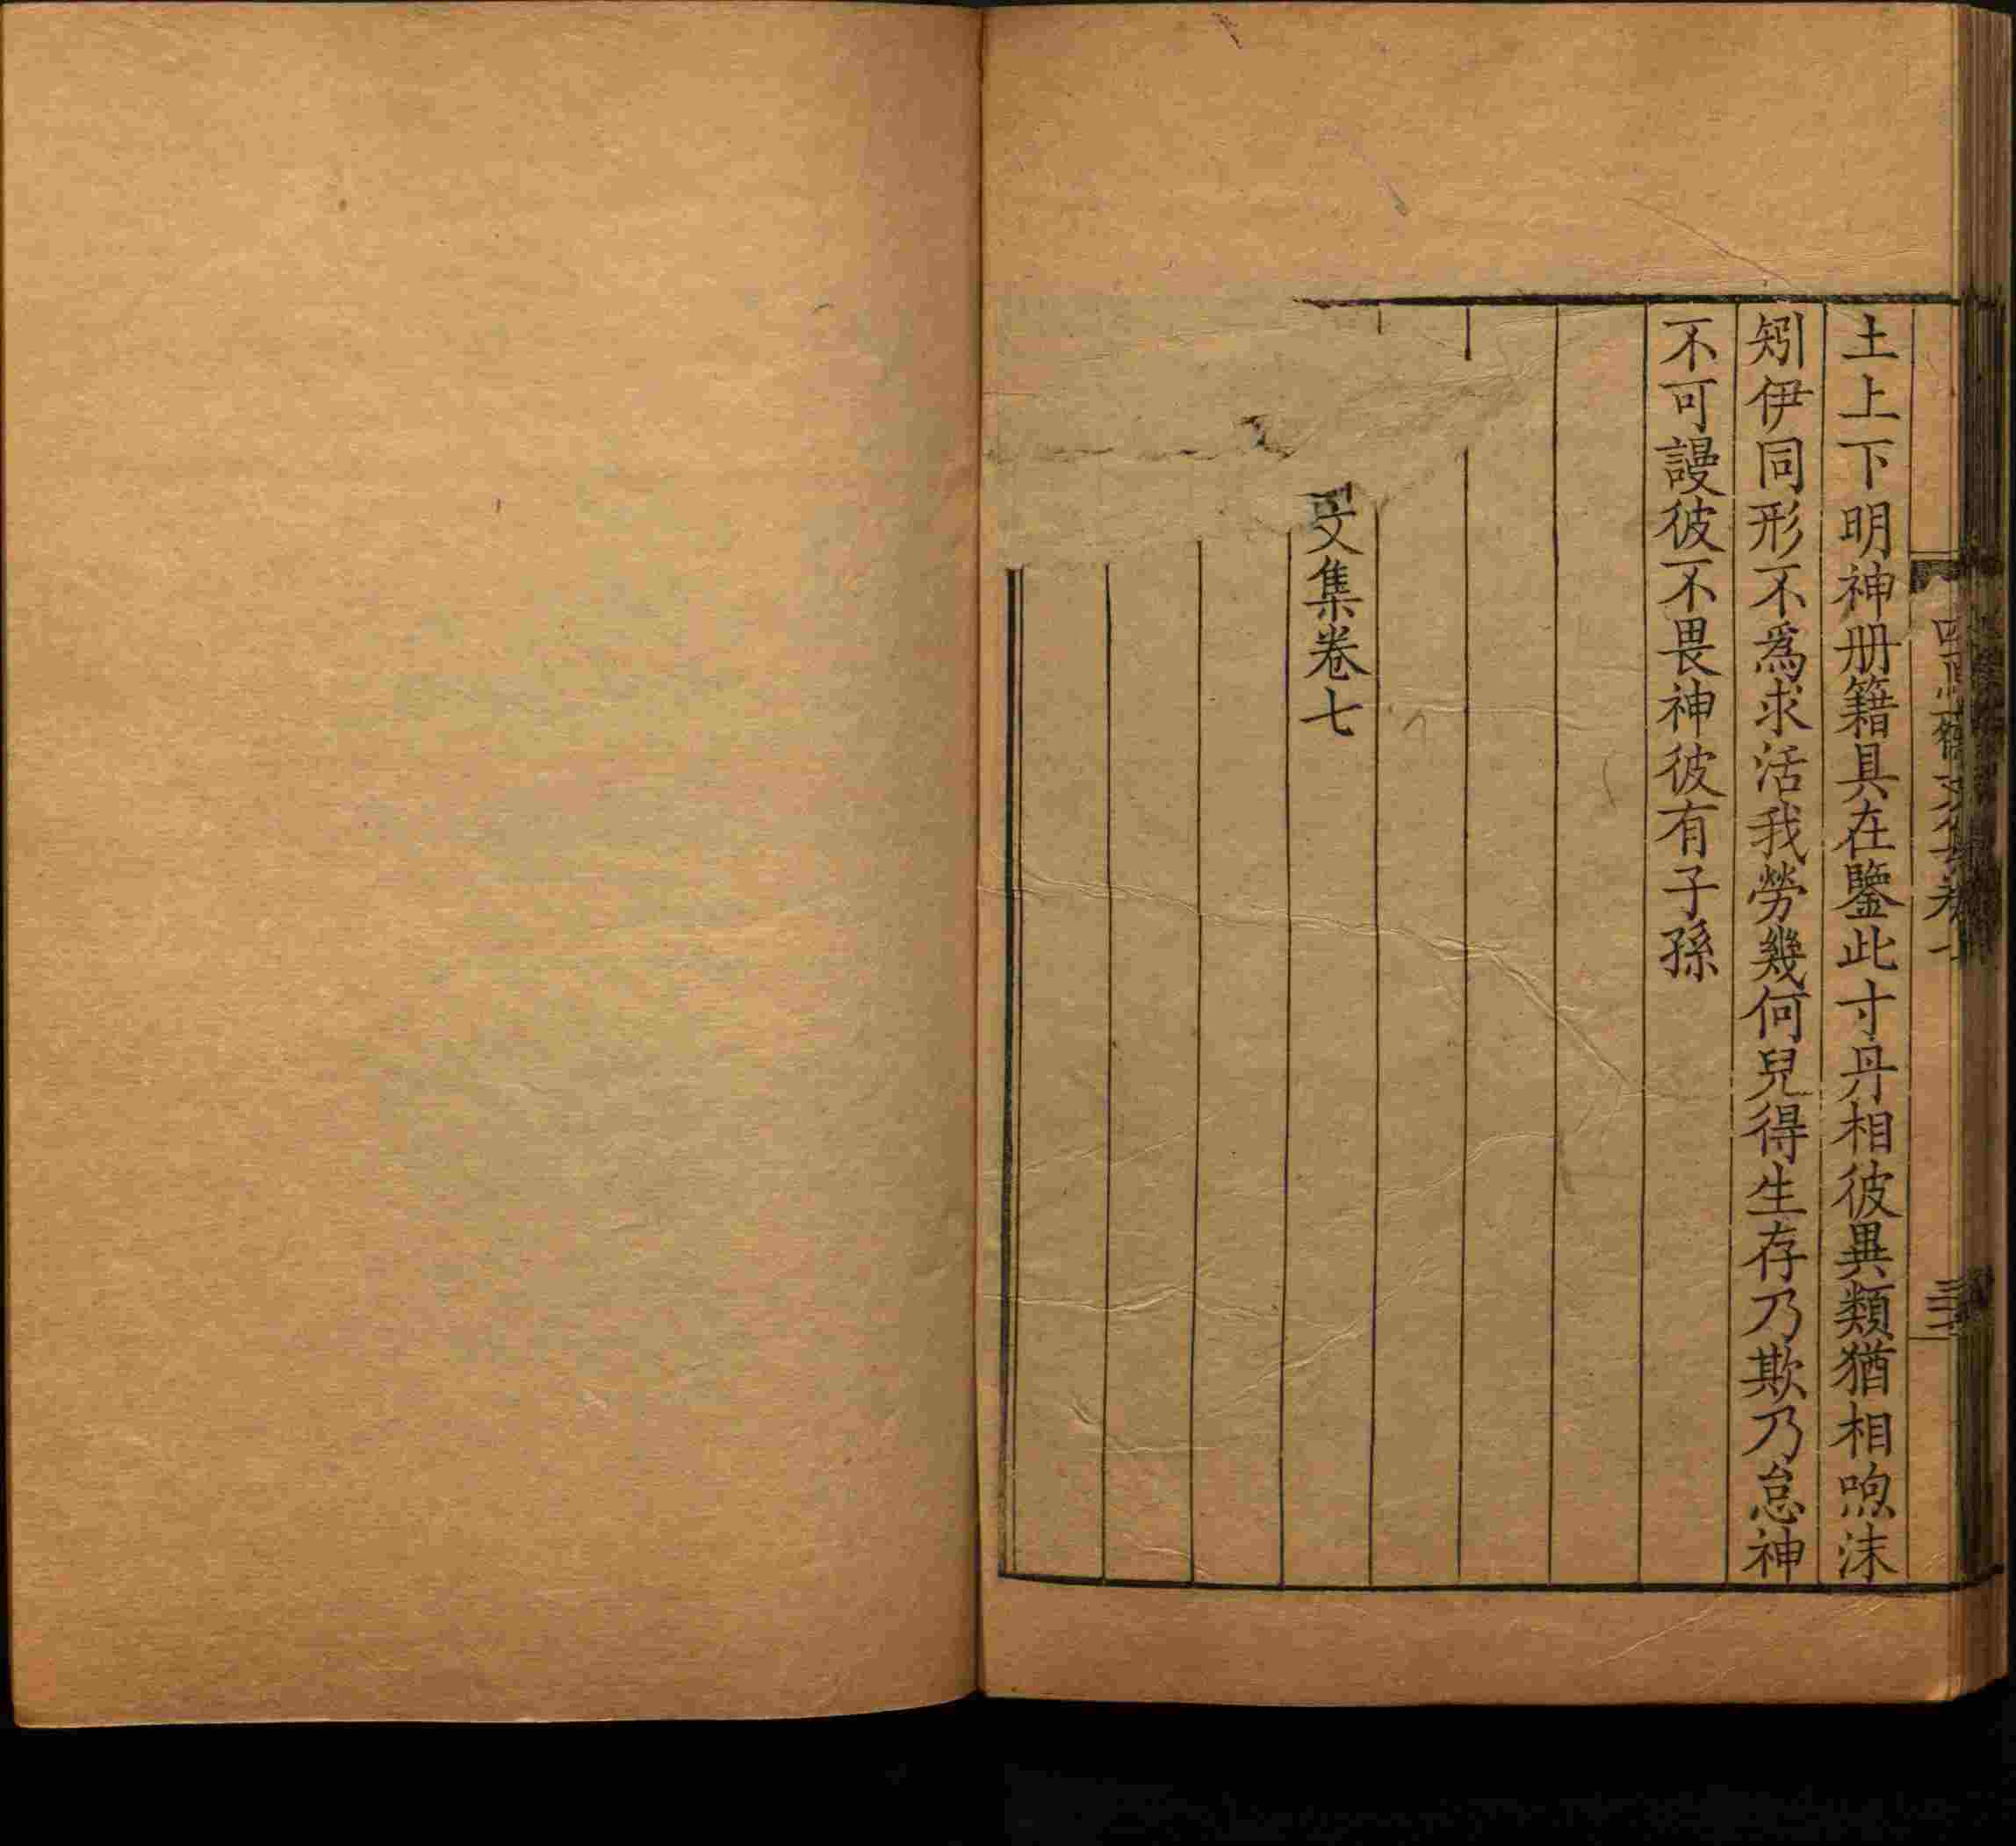 土上下明神册籍具在鑒此寸丹相彼異類猶相喣沫
矧伊同形不爲求活我勞幾何兒得生存乃欺乃怠神
不可謾彼不畏神彼有子孫
文集卷七